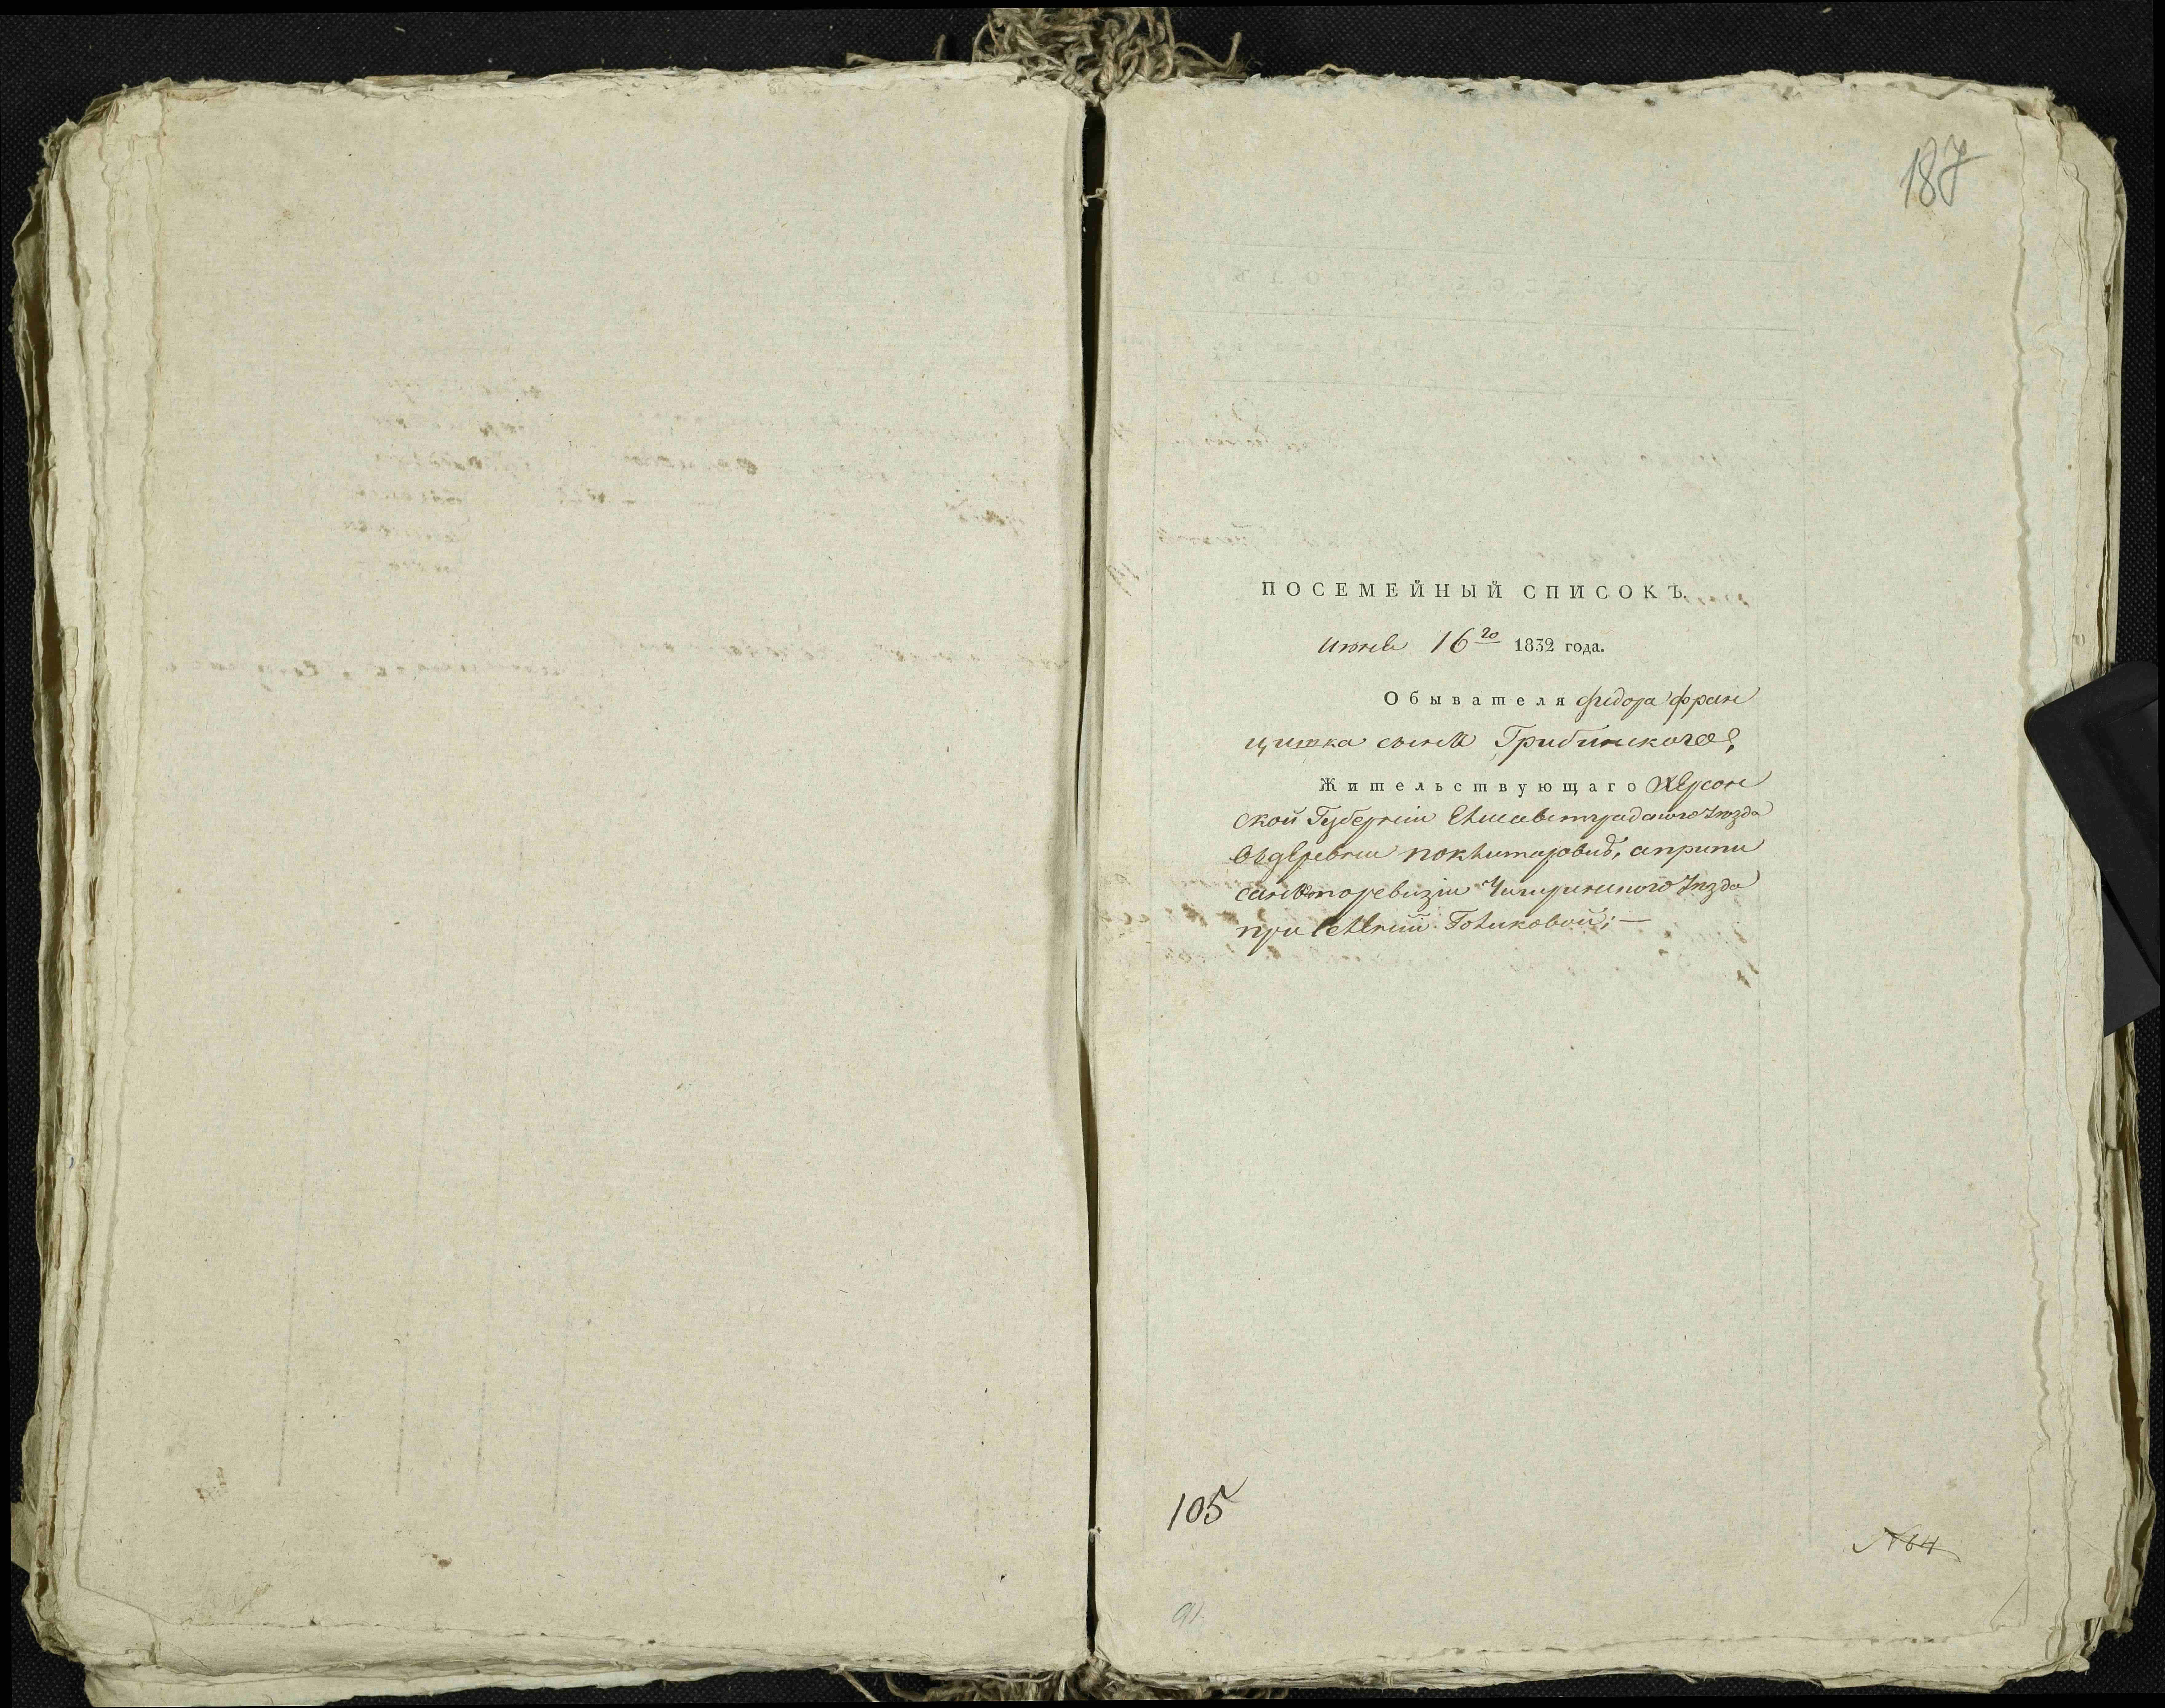 187
ПОСЕМЕЙНЫЙ СПИСОКЪ.
июня 16го 1832 года.
Обывателя Федора Фран
цишка сына Грибинского,
Жительствующаго Херсон
ской Губерніи Елисаветградского Уѣзда
въ деревни покитаровид, а припи
сан по ревизіи Чигиринского Уѣзда
при селении Голиковой; —
105
№64
91.